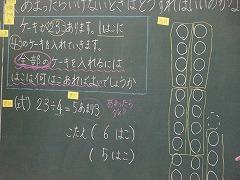 あまったらいけないときはどうすればいいのかな
ケーキが23こあります。1はこに
4このケーキを入れていきます。
全部のケーキを入れるには
はこは何はこあればよいでしょうか
(式) 23÷4=5あまり3
あまったら
ダメ!
こたえ (6はこ)
(5はこ)